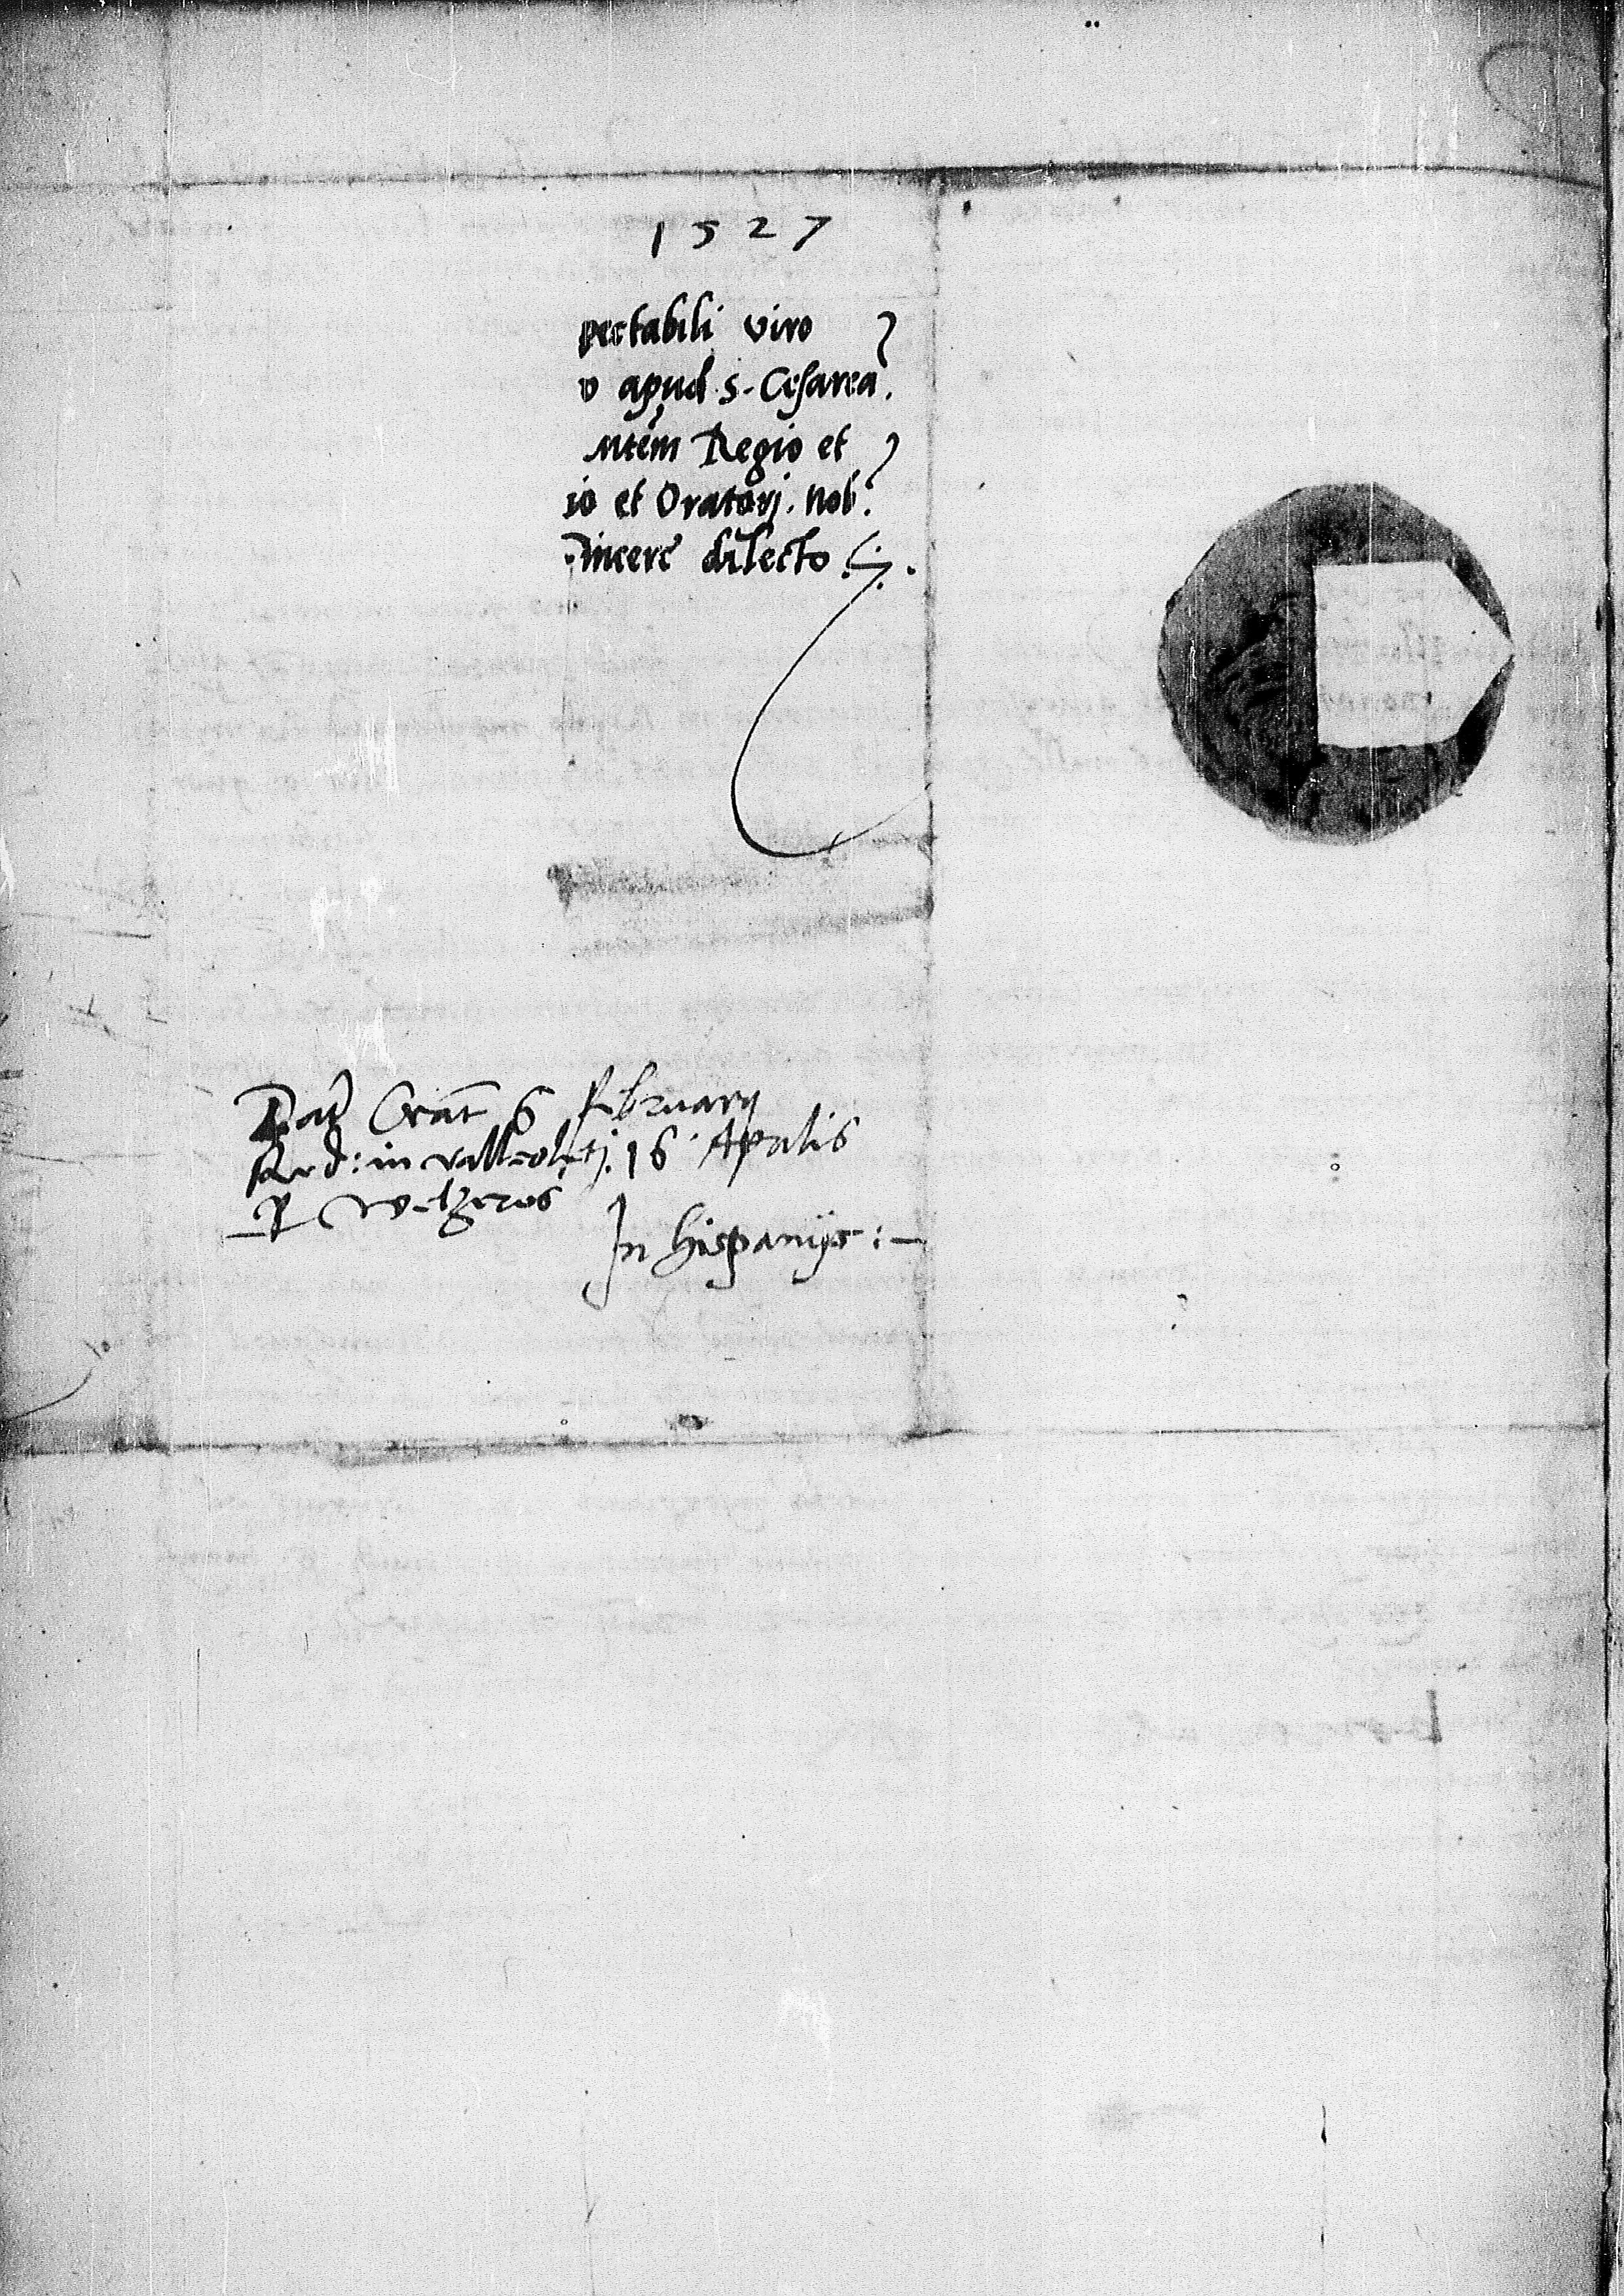 1527
pectabili viro
o apud S. Cesarea.
ntem Regio et
io et Oratorj. nob.
sincere dilecto
Dat Crac 6 februarij
Red: in valleoleti. 16 Aprilis
P welzeros
In hispanijs:-